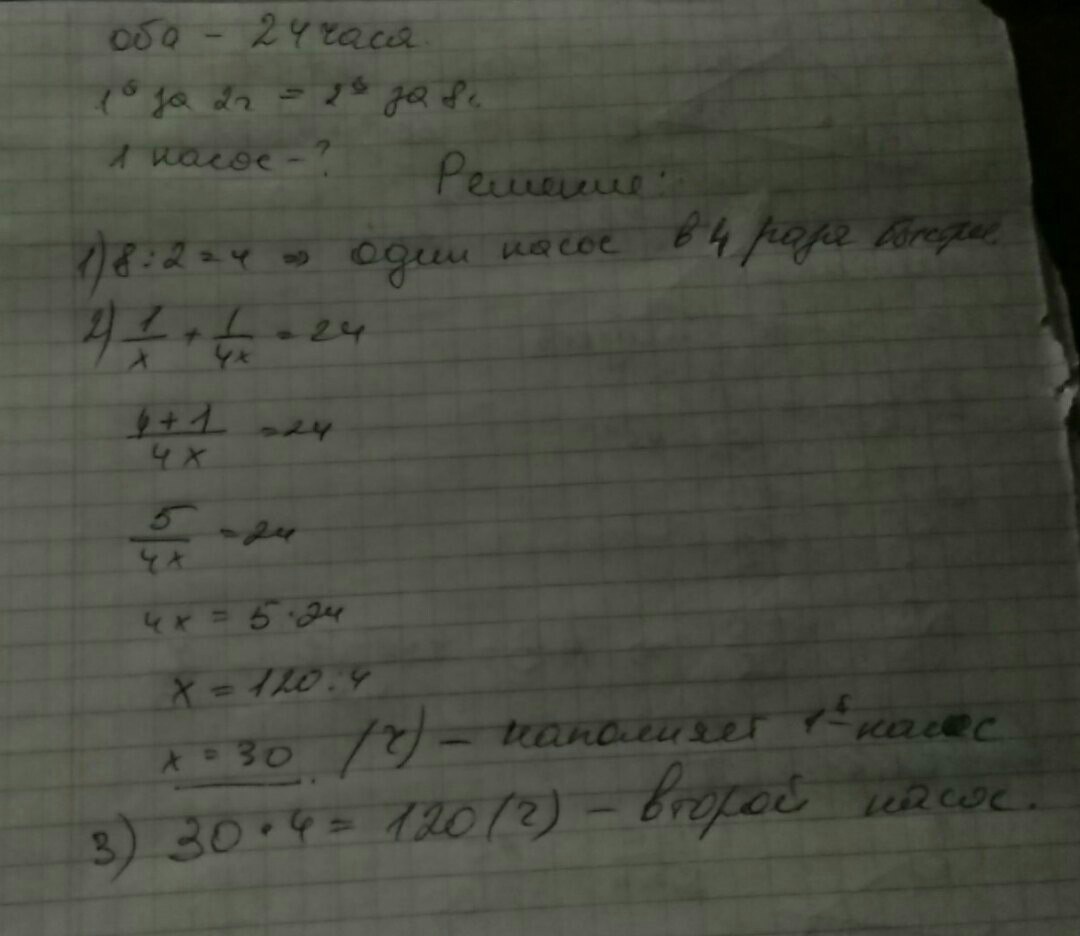 оба - 24 часа.
1й за 2ч = 2й за 8ч.
1 насос - ?
Решение:
1) 8:2=4 => один насос в 4 раза быстрее
2) 1/x + 1/4x = 24
4+1/4x = 24
5/4x = 24
4x = 5·24
x = 120:4
x = 30. (ч) - наполняет 1й насос
3) 30·4 = 120 (ч) - второй насос.